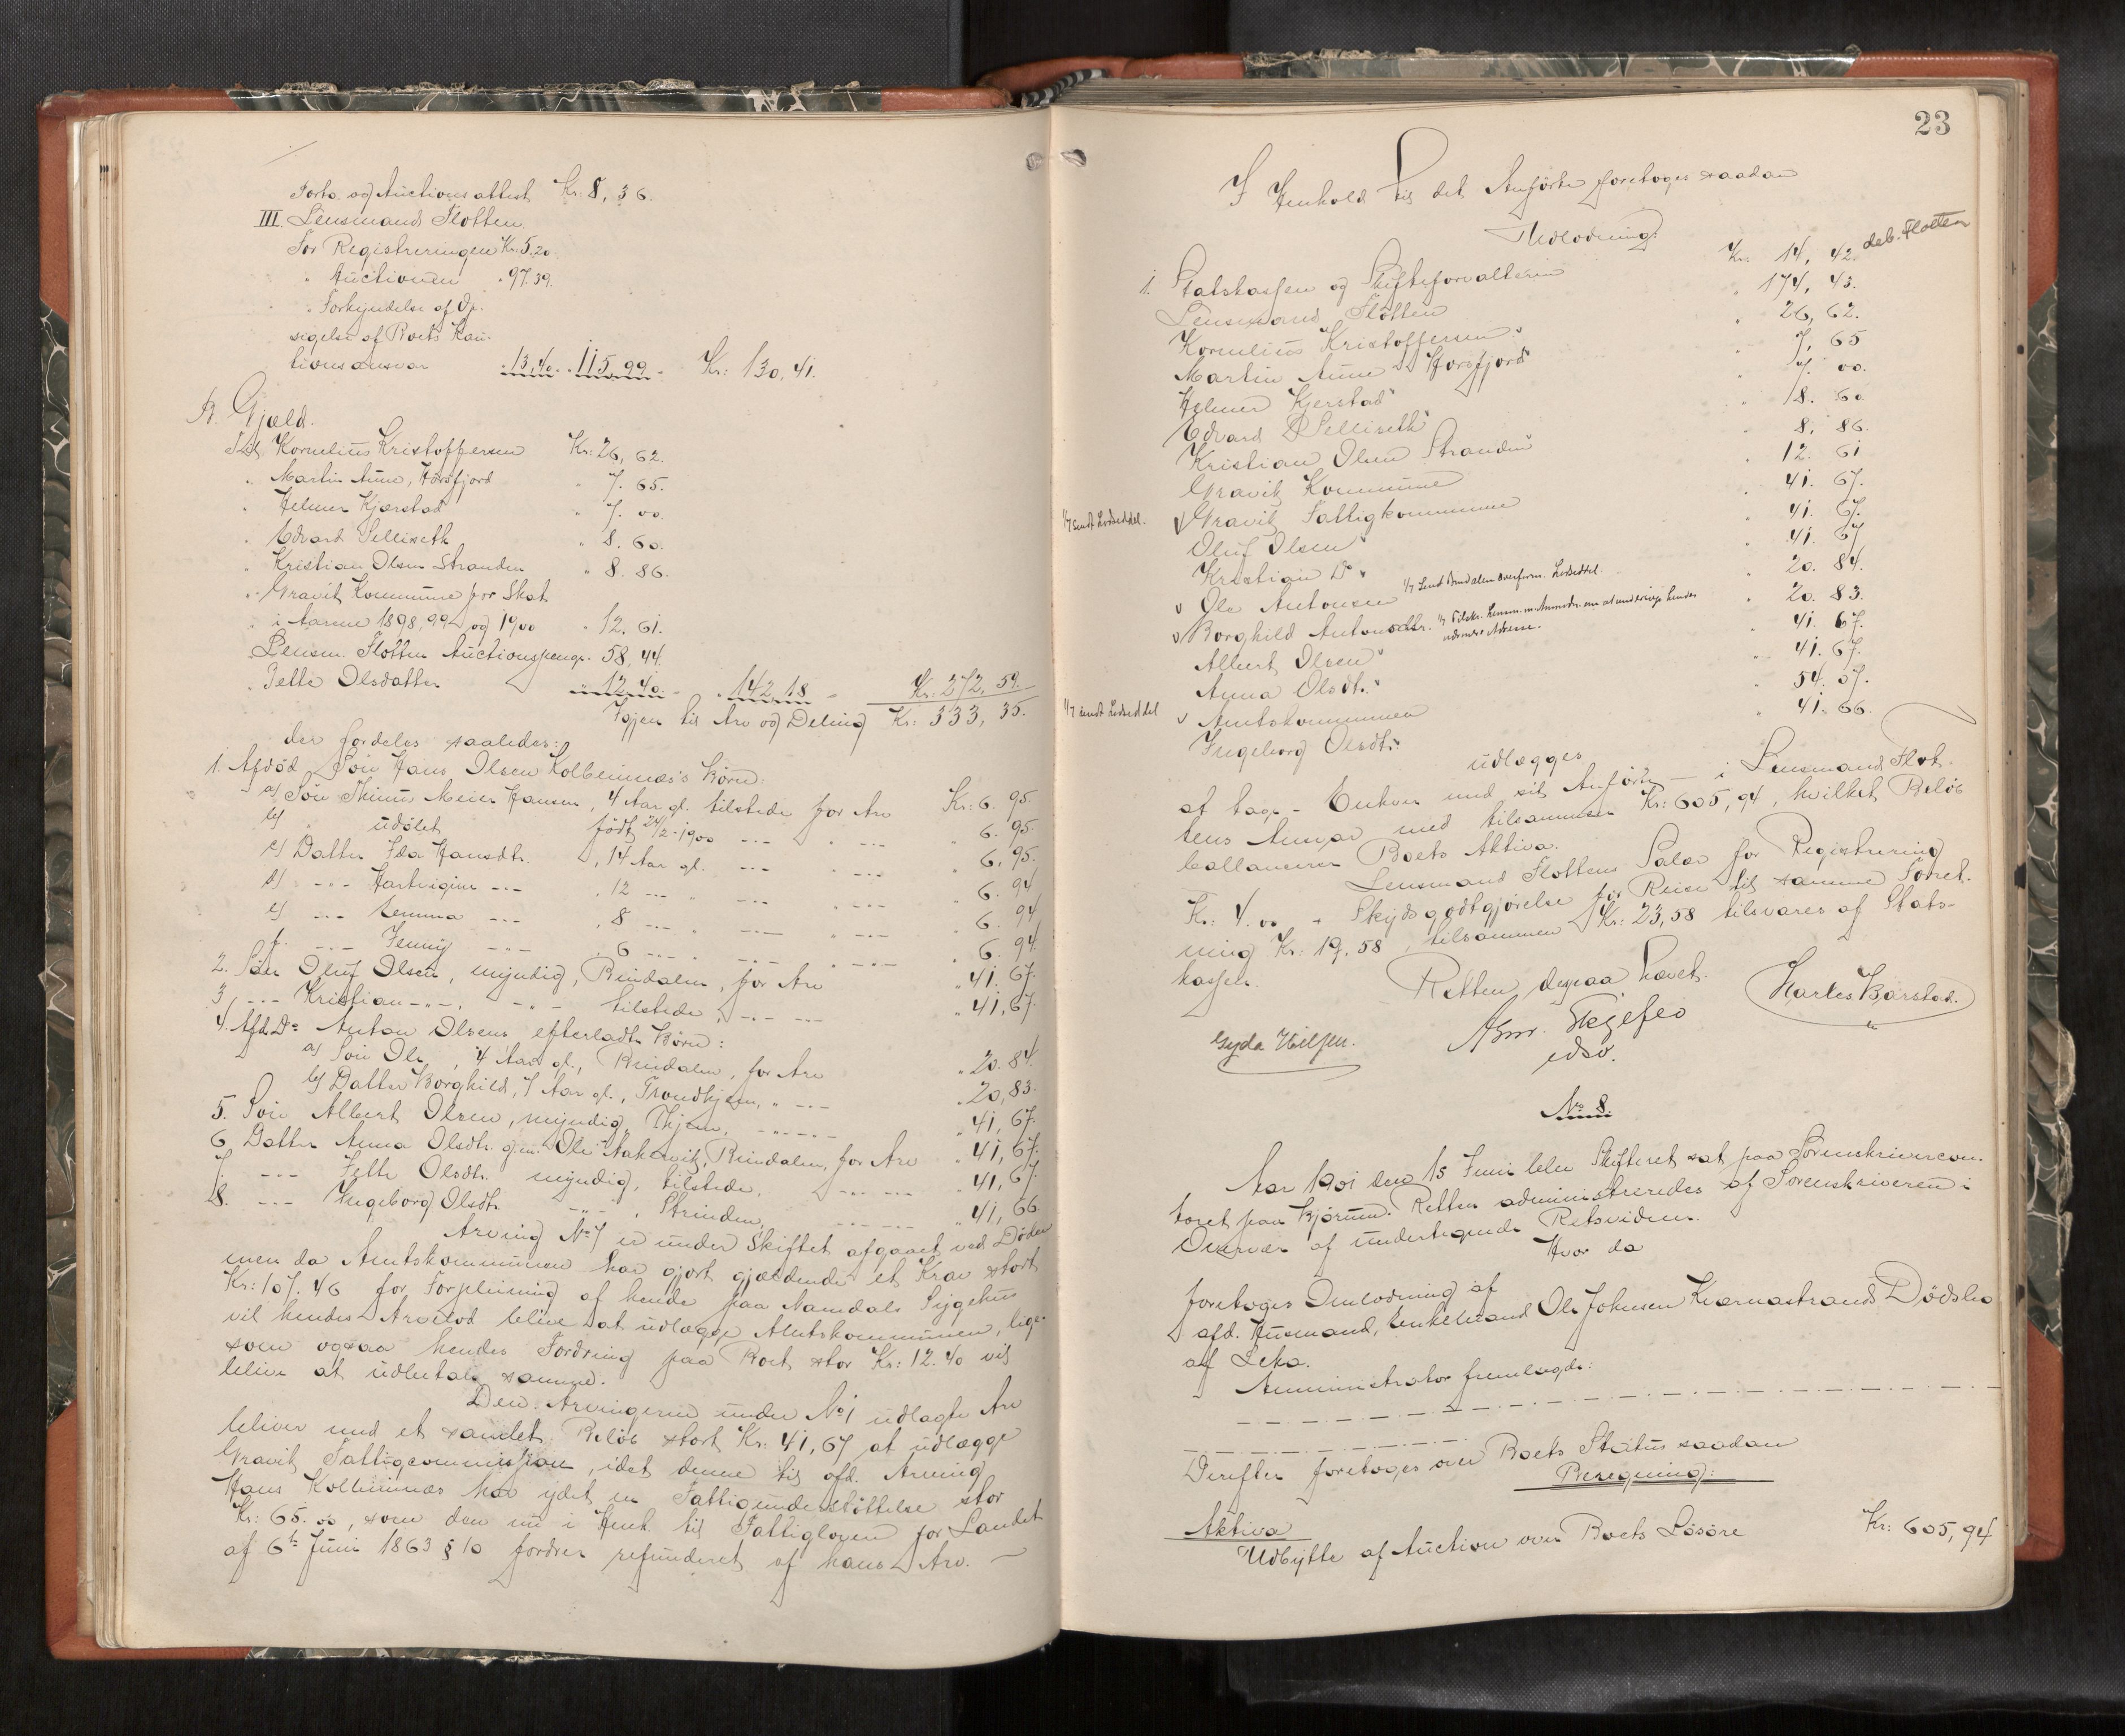 Porto og Auctionsattest Kr. 8,36.
III. Lensmand Flotten.
For Registreringen Kr. 5.20
" Auctionen " 97.39.
" Forkyndelse af Op-
sigelse af Boets Kau-
tionsansvar " 13,40. " 115,99 - Kr: 130,41.
B. Gjæld.
Til Kornelius Kristoffersen Kr: 26,62.
" Martin Aune, Horsfjord " 7.65.
" Helmer Kjærstad " 7.00
" Edvard Selliseth " 8.60.
" Kristian Olsen Stranden " 8.86.
" Gravik Kommune for Skat
i Aarene 1898, 99 og 1900 " 12.61.
" Lensm. Flotten Auctionspenge 58,44.
" Jette Olsdatter " 12.40. - " 142,18 - Kr: 272,59.
Igjen til Arv og Deling Kr: 333,35.
der fordeles saaledes:
1. Afdød Søn Hans Olsen Kolbeinnæs's Børn:
a) Søn Thinus Meier Hansen, 4 Aar gl. tilstede for Arv Kr: 6.95.
b) " udøbt født 24/2-1900 -"- " -"- " 6.95.
c) Datter Ida Hansdtr. , 14 Aar gl. -"- " -"- " 6.95.
d) -"- Hartvigine -"- , 12 -"- " -"- " -"- " 6.94
e) -"- Lemma -"- , 8 -"- " -"- " -"- " 6.94
f. -"- Jenny -"- , 6 -"- " -"- " -"- " 6.94.
2. Søn Oluf Olsen, myndig, Bindalen, for Arv " 41.67.
3 -"- Kristian -"-, -"- tilstede, -"- -"- " 41,67.
4. Afd. Do Anton Olsens efterladte Børn:
a) Søn Ole, 4 Aar gl., Bindalen, for Arv " 20.84.
b) Datter Borghild, 7 Aar gl., Trondhjem, " -"- " 20,83.
5. Søn Albert Olsen, myndig, Thjem, -"- -"- " 41,67.
6. Datter Anna Olsdtr. g.m. Ole Aakervik, Bindalen, for Arv " 41,67.
7. -"- Jette Olsdtr. myndig, tilstede, -"- -"- " 41,67.
8. -"- Ingeborg Olsdtr. -"- , Strinden, -"- -"- " 41,66
Arving No 7 er under Skiftet afgaaet ved Døden
men da Amtskommunen har gjort gjældende et Krav stort
Kr: 107.46 for Forpleining af hende paa Namdals Sygehus
vil hendes Arvelod blive at udlægge Amtskommunen, lige-
som ogsaa hendes Fordring paa Boet stor Kr: 12.40 vil
blive at udbetale samme.
Den Arvingerne under No 1 udlagte Arv
bliver med et samlet Beløb stort Kr: 41,67 at udlægge
Gravik Fattigcommission, idet denne til afd. Arving
Hans Kolbeinnæs har ydet en Fattigunderstøttelse stor
Kr: 65.00, som den nu i Henh. til Fattigloven for Landet
af 6te Juni 1863 § 10 fordrer refunderet af hans Arv. -
23
I Henhold til det Anførte foretoges saadan
Udlodning:
1. Statskassen og Skifteforvalteren Kr. 14,42. deb. Flotten
Lensmand Flotten " 174,43.
Kornelius Kristoffersen " 26,62.
Martin Aune Horsfjord " 7,65
Helmer Kjerstad " 7.00.
Edvard Selliseth " 8.60
Kristian Olsen Stranden " 8.86.
Gravik Kommune " 12.61
1/7 sendt Lodseddel. v Gravik Fattigkommune " 41.67.
Oluf Olsen " 41.67.
Kristian Do " 41.67
v Ole Antonsen 1/7 Sendt Bindalen overform. Lodseddel. " 20.84.
v Borghild Antonsdtr. 1/7 Tilskr. Lensm. m Anmodn. om at underrige hendes " 20.83.
nærmere Adresse.
Albert Olsen " 41.67.
Anna Olsdt. " 41.67.
1/7 sendt Lodseddel v Amtskommunen " 54.07.
Ingeborg Olsdtr. " 41.66.
udlægges
at tage - Enhver med sit Anførte - i Lensmand Flot-
tens Ansvar med tilsammen Kr: 605,94, hvilket Beløb
ballancerer Boets Aktiva.
Lensmand Flottens Salær for Registrering
Kr: 4.00 + Skydsgodtgjørelse for Reise til samme Forret-
ning Kr: 19,58, tilsammen Kr: 23,58 tilsvares af Stats-
kassen.
Retten derpaa hævet.
Gyda Nilsen.
Skjeflo
edsv.
Karles Barstad.
No 8.
Aar 1901 den 15 Juni blev Skifteret sat paa Sorenskrivercon-
toret paa Bjørum. Retten administreredes af Sorenskriveren i
Overvær af undertegnede Retsvidner.
Hvor da
foretoges Omlodning af
afd. Husmand, Enkemand Ole Johnsen Kvernastrands Dødsbo
af Leka.
Administrator fremlagde:
Derefter foretoges over Boets Status saadan
Beregning:
Aktiva
Udbytte af Auction over Boets Løsøre Kr: 605,94